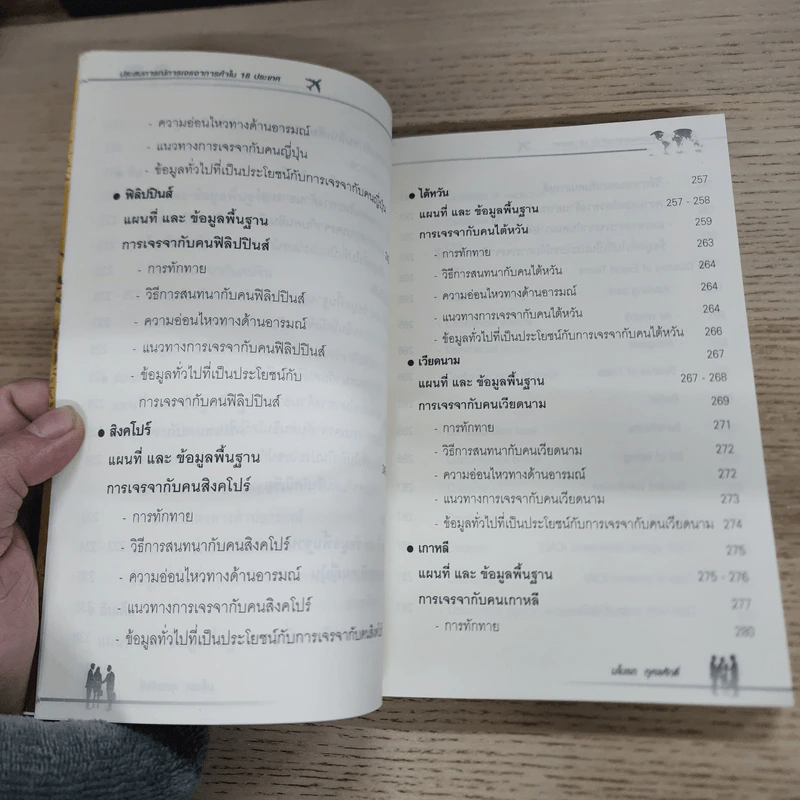 ประสบการณ์การเจรจาการค้าใน 18 ประเทศ
- ความอ่อนไหวทางด้านอารมณ์
- แนวทางการเจรจากับคนญี่ปุ่น
- ข้อมูลทั่วไปที่เป็นประโยชน์กับการเจรจากับคนญี่ปุ่น
● ฟิลิปปินส์
แผนที่ และ ข้อมูลพื้นฐาน
การเจรจากับคนฟิลิปปินส์
- การทักทาย
- วิธีการสนทนากับคนฟิลิปปินส์
- ความอ่อนไหวทางด้านอารมณ์
- แนวทางการเจรจากับคนฟิลิปปินส์
- ข้อมูลทั่วไปที่เป็นประโยชน์กับ
การเจรจากับคนฟิลิปปินส์
● สิงคโปร์
แผนที่ และ ข้อมูลพื้นฐาน
การเจรจากับคนสิงคโปร์
- การทักทาย
- วิธีการสนทนากับคนสิงคโปร์
- ความอ่อนไหวทางด้านอารมณ์
- แนวทางการเจรจากับคนสิงคโปร์
- ข้อมูลทั่วไปที่เป็นประโยชน์กับการเจรจากับคน
● ไต้หวัน 257
แผนที่ และ ข้อมูลพื้นฐาน 257 - 258
การเจรจากับคนไต้หวัน 259
- การทักทาย 263
- วิธีการสนทนากับคนไต้หวัน 264
- ความอ่อนไหวทางด้านอารมณ์ 264
- แนวทางการเจรจากับคนไต้หวัน 264
- ข้อมูลทั่วไปที่เป็นประโยชน์กับการเจรจากับคนไต้หวัน 266
● เวียดนาม 267
แผนที่ และ ข้อมูลพื้นฐาน 267 - 268
การเจรจากับคนเวียดนาม 269
- การทักทาย 271
- วิธีการสนทนากับคนเวียดนาม 272
- ความอ่อนไหวทางด้านอารมณ์ 272
- แนวทางการเจรจากับคนเวียดนาม 273
- ข้อมูลทั่วไปที่เป็นประโยชน์กับการเจรจากับคนเวียดนาม 274
● เกาหลี 275
แผนที่ และ ข้อมูลพื้นฐาน 275 - 276
การเจรจากับคนเกาหลี 277
- การทักทาย 280